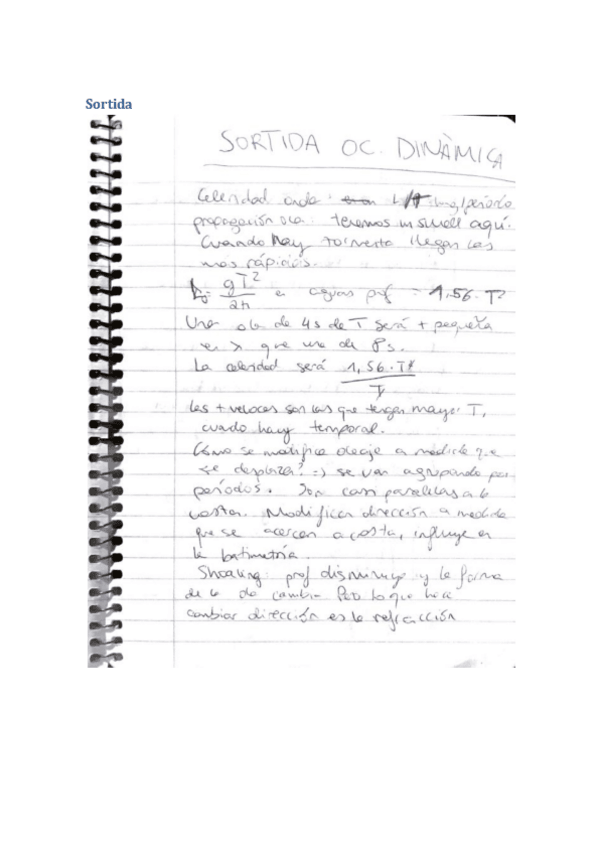 Sortida
SORTIDA OC. DINÀMICA
Celeridad onda: L/T lng/periodo
propagación ola: tenemos un swell aquí.
Cuando hay tormenta llegan las
más rápidas.
gT²/2π aguas prof = 1,56·T²
Una ola de 4s de T será + pequeña
en λ que una de 8s.
La celeridad será 1,56·T²/T
Las + veloces son las que tengan mayor T,
cuando hay temporal.
Cómo se modifica oleaje a medida que
se desplaza? => se van agrupando por
períodos. Son casi paralelas a la
costa. Modifican dirección a medida
que se acercan a costa, influye en
la batimetría.
Shoaling: prof disminuye y la forma
de la ola cambia. Pero lo que hace
cambiar dirección es la refracción